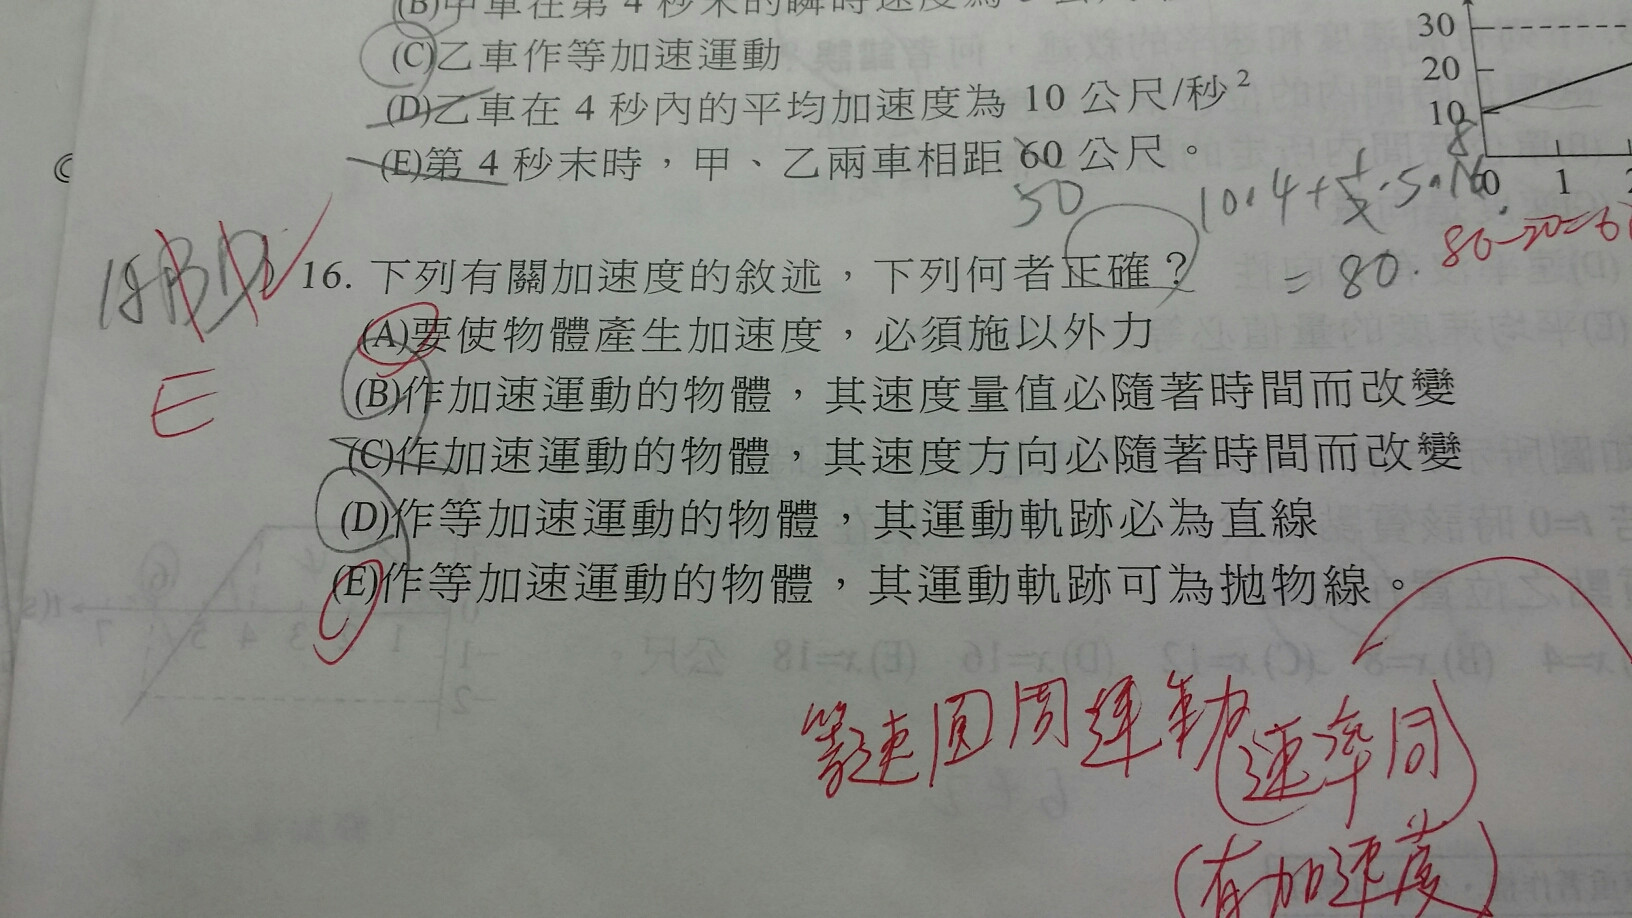 (B)甲車在第 4 秒末的瞬時速度為
(C)乙車作等加速運動
(D)乙車在 4 秒內的平均加速度為 10 公尺/秒²
(E)第 4 秒末時，甲、乙兩車相距 60 公尺。
30
20
10
8
0 1 2
50
10·4+
= 80.
16. 下列有關加速度的敘述，下列何者正確？
(A)要使物體產生加速度，必須施以外力
(B)作加速運動的物體，其速度量值必隨著時間而改變
(C)作加速運動的物體，其速度方向必隨著時間而改變
(D)作等加速運動的物體，其運動軌跡必為直線
(E)作等加速運動的物體，其運動軌跡可為拋物線。
E
等速圓周運動(速率同)
(有加速度)